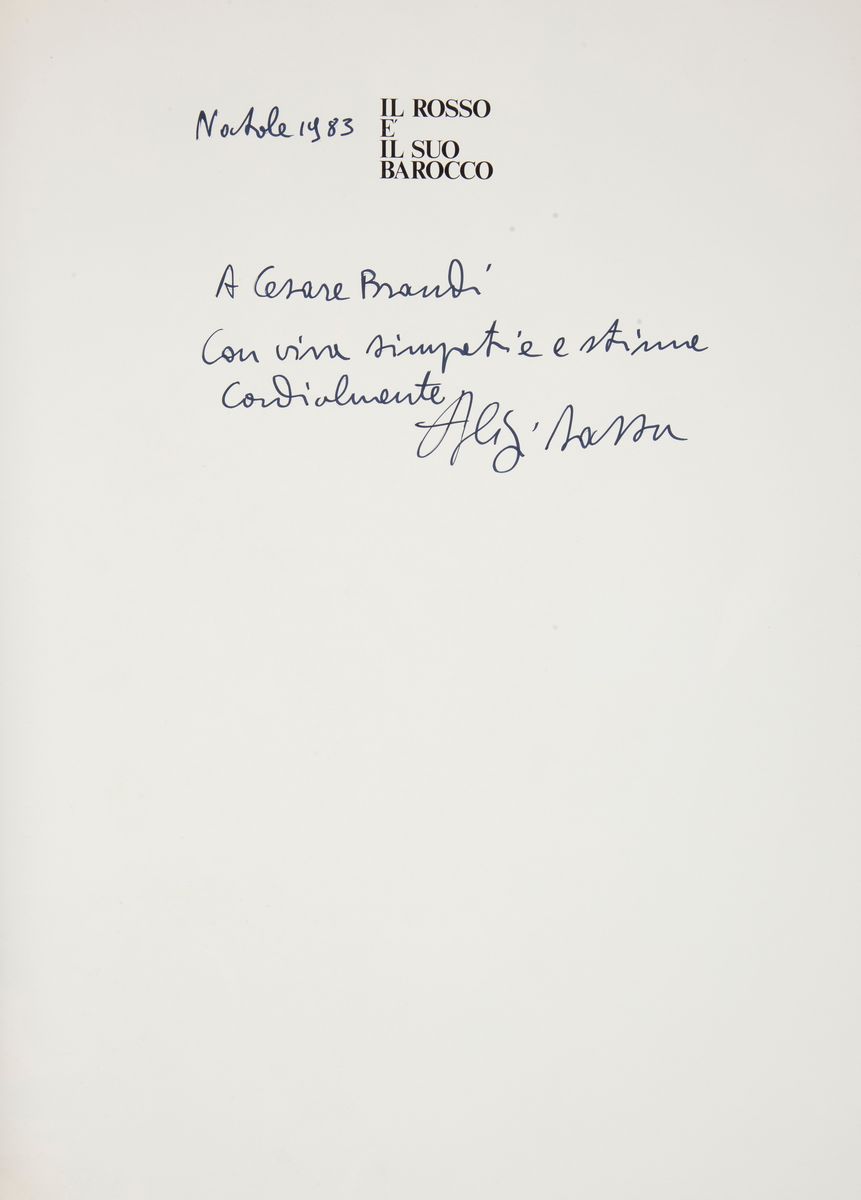 Natale 1983
IL ROSSO
E'
IL SUO
BAROCCO
A Cesare Brandi
Con viva simpatia e stima
Cordialmente
Aligi Sassu